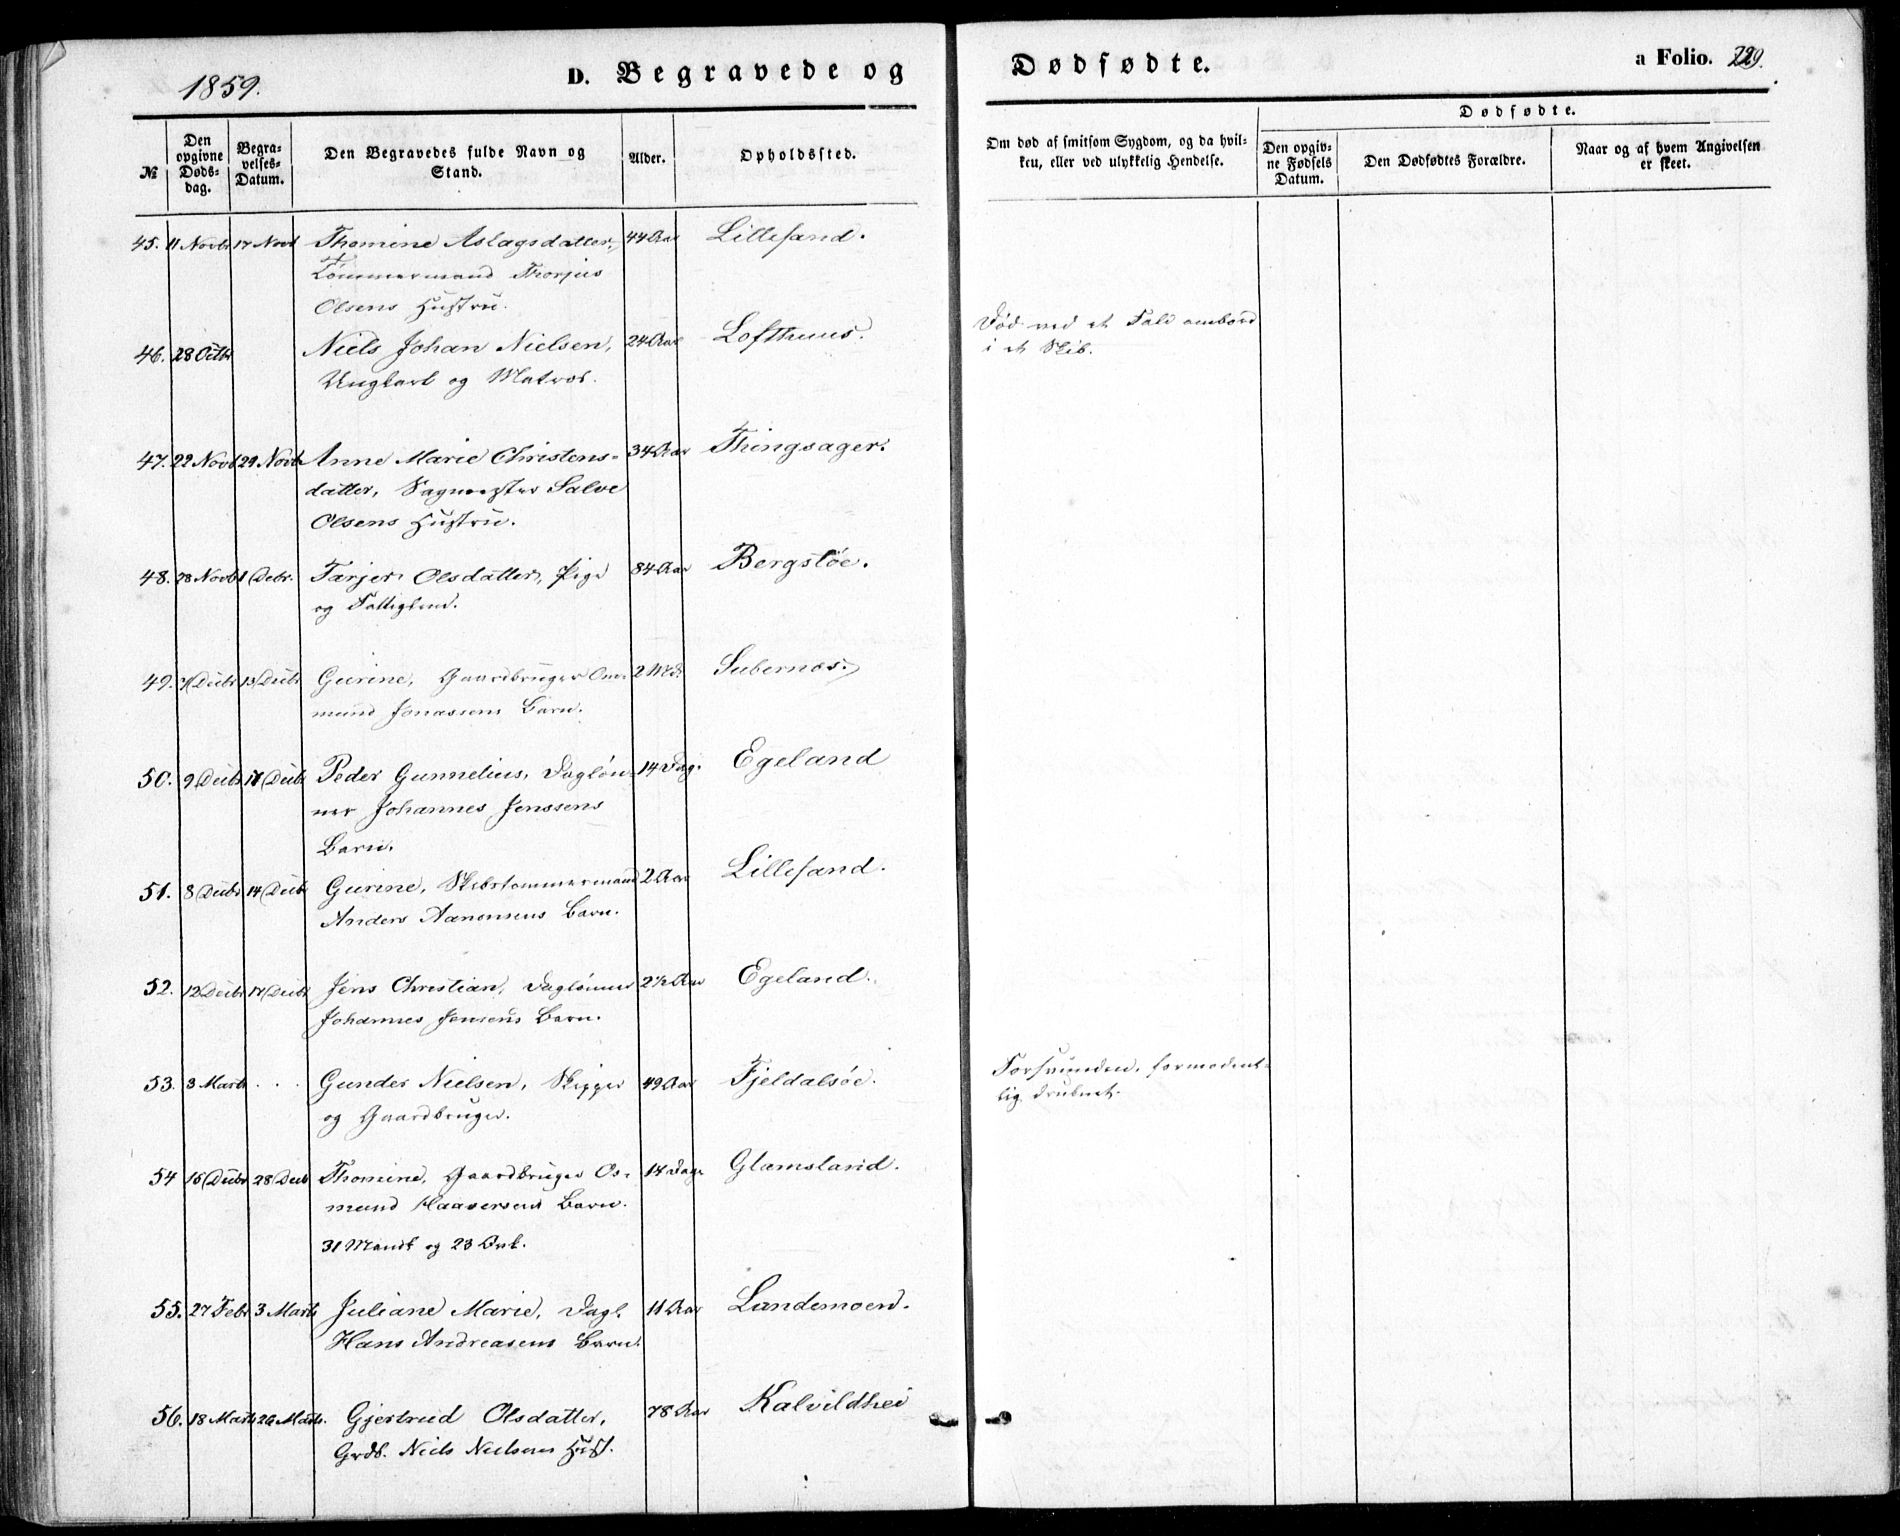 1859.
D. Begravede og
Dødsødte.
a Folio. 229.
№
Den opgivne Døds-dag.
Begra-velses-Datum.
Den Begravedes fulde Navn og Stand.
Alder.
Opholdssted.
Om død af smitsom Sygdom, og da hvil-
ken, eller ved ulykkelig Hendelse.
Dødfødte.
Den opgiv-ne Fødsels Datum.
Den Dødfødtes Forældre.
Naar og af hvem Angivelsen er skeet.
45. 11 Novbr 17 Novb Thomine Aslagsdatter, 44 Aar Lillesand.
Tømmermand Thorjus
Olsens Hustru.
46. 28 Octbr Niels Johan Nielsen, 24 Aar Lofthuus. Død ved et Fald ombord
Ungkarl og Matros. i et Skib.
47. 22 Novb 29 Novb Anne Marie Christens= 34 Aar Thingsager.
datter, Sagmester Salve
Olsens Hustru.
48. 28 Novb 1 Debr. Tarjer Olsdatter, Pige 84 Aar Bergstøe.
og Fattiglem.
49. Decbr 13 Decbr Gurine, Gaardbruger Om= 2 Md. Subernæs.
mund Jonassens Barn.
50. 9 Decbr Decb Peder Gunnelius, Dagløn= 14 Dag. Egeland
ner Johannes Jenssens
Barn.
51. 8 Decbr 14 Decb Gurine, Skibstømmermand 2 Aar Lillesand.
Anders Aanonsens Barn.
52. 12 Decbr 17 Decbr Jens Christian, Daglønner 2½ Aar Egeland.
Johannes Jensens Barn.
53. 3 Marts . . . Gunder Nielsen, Skipper 49 Aar Fjeldalsøe. Forsvunden, formodent=
og Gaardbruger. lig druknet.
54 16 Decbr 28 Decb Thomine, Gaardbruger Os= 14 Dage Glamsland.
mund Haaversens Barn.
31 Mandk og 23 Qvk.
55. 27 Febr 3 Marts Juliane Marie, Dagl. 11 Aar Landemoen.
Hans Andreasens Barn.
56. 18 Marts 26 Marts. Gjertrud Olsdatter, 78 Aar Kalvildhei
Grdb. Niels Nielsens Hust.